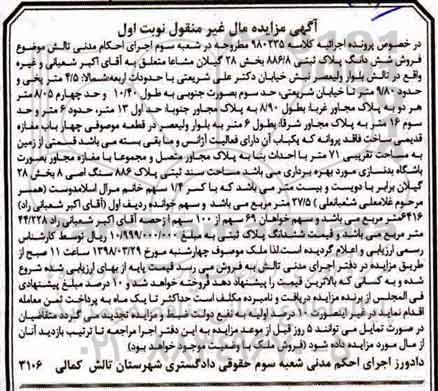 آگهی مزایده مال غیر منقول نوبت اول
در خصوص پرونده اجرائیه کلاسه ۹۸۰۲۲۵ مطروحه در شعبه سوم اجرای احکام مدنی تالش موضوع
فروش شش دانگ پلاک ثبتی ۸۸۶/۸ بخش ۲۸ گیلان مشاعا متعلق به آقای اکبر شعبانی و غیره
واقع در تالش بلوار ولیعصر نبش خیابان دکتر علی شریعتی با حدودات اربعه:شمالا: ۴/۵ متر پخی و
حدود ۹/۸۰ متر تا خیابان شریعتی، حد سوم بصورت جنوبی به طول ۱۰/۴۰ و حد چهارم ۸۰۵ متر
هر در به پلاک مجاور غربا: بطول ۸/۹۰ به پلاک مجاور جنوبا: حد اول ۱۳ متر، حدود ۶ متر و حد
سوم ۱۶ متر به پلاک مجاور شرقا: بطول ۶ متر به بلوار ولیعصر در قطعه موصوفی چهار باب مغازه
قدیمی ساخت فاقد پروانه که یکباب آن دارای فعالیت آژانس و مابقی بسته می باشد قسمتی از زمین
به مساحت تقریبی ۷۱ متر با احداث بنا به پلاک مجاور متصل و مجموعا با مغازه مجاور بصورت
باشگاه بدنسازی مورد بهره برداری می باشد مساحت سند ثبتی پلاک ۸۸۶ سنگ اصی ۸ بخش ۲۸
گیلان برابر با دویست و بیست متر می باشد که با کسر ۱/۴ سهم خانم مرال اسلامدوست (همسر
مرحوم غلامعلی شعبانعلی) ۲۷/۵ متر مربع می باشد و سهم خوانده ردیف اول (آقای اکبر شعبانی راد)
۶۴۱۶متر مربع می باشد و سهم خواهان ۶۹ سهم از ۱۰۰ سهم ازحصه آقای اکبر شعبانی راد ۴۴/۲۲۸
متر مربع می باشد و قیمت ششدانگ پلاک ثبتی به مبلغ ۱۰/۹۹۹/۰۰۰/۰۰۰ ریال توسط کارشناس
رسمی ارزیابی و اعلام گردیده است.لذا ملک موصوف چهارشنبه مورخ ۱۳۹۸/۰۳/۲۹ ساعت ۱۱ صبح از
طریق مزایده در دفتر اجرای مدنی تالش به فروش می رسد قیمت پایه از بهای ارزیابی شده شروع
شده و به کسانی که بالاترین قیمت را پیشنهاد دهد فروخته خواهد شد و ۱۰ درصد مبلغ پیشنهادی
فی المجلس از برنده مزایده دریافت و نامبرده مکلف است حداکثر تا یک ماه به پرداخت ثمن معامله
اقدام نماید در غیر اینصورت ۱۰ درصد اولیه به نفع دولت ضبط و مزایده تجدید می گردد متقاضیان
در صورت تمایل می توانند ۵ روز قبل از موعد مزایده به این دفتر اجرا مراجعه تا ترتیب بازدید آنان
از مال مورد مزایده داده شود (فروش ملک با وضعیت موجود خواهد بود)
دادورز اجرای احکم مدنی شعبه سوم حقوقی دادگستری شهرستان تالش کمالی ۳۱۰۶